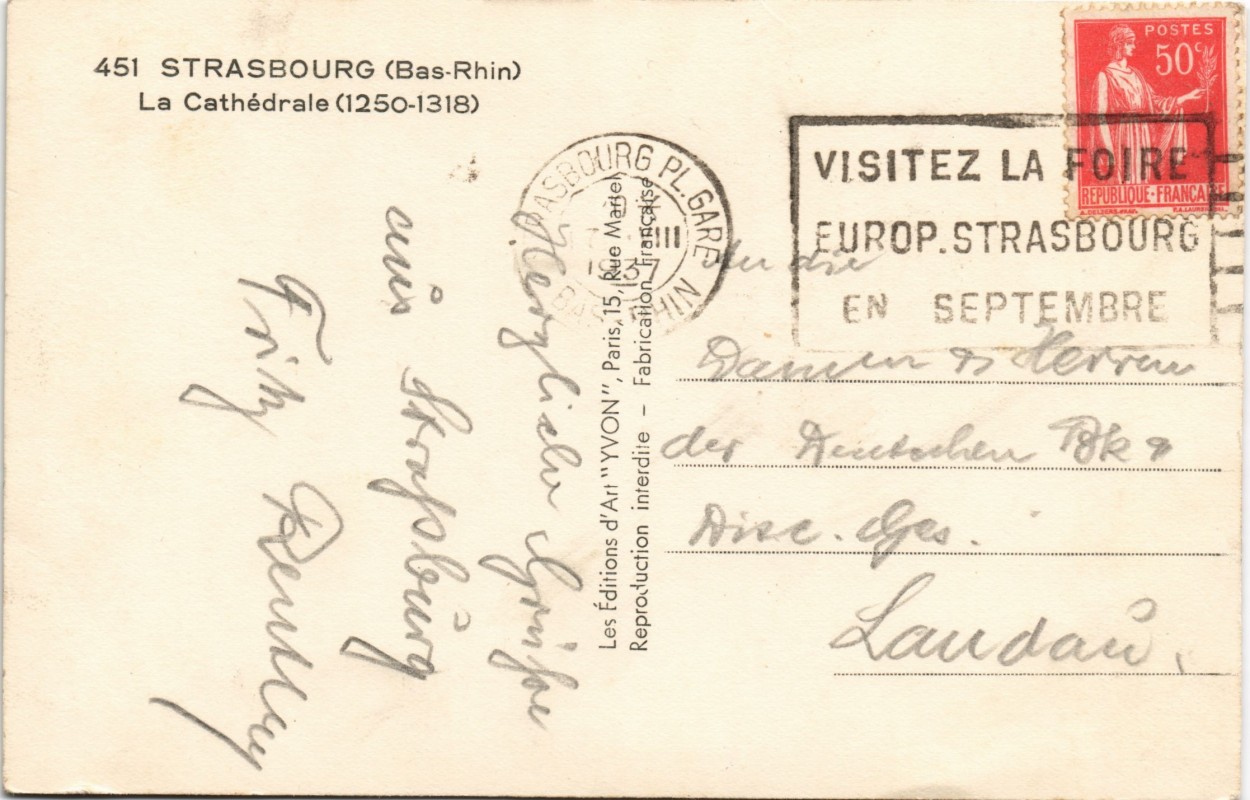 451 STRASBOURG (Bas-Rhin)
La Cathédrale (1250-1318)
POSTES
50c
REPUBLIQUE-FRANÇAISE
RASBOURG PL. GARE
1937
BAS-RHIN
VISITEZ LA FOIRE
EUROP. STRASBOURG
EN SEPTEMBRE
Les Éditions d'Art "YVON", Paris, 15, Rue Martel
Reproduction interdite – Fabrication Française
Herzliche Grüße
aus Straßburg
Fritz
An die
Damen & Herren
der Deutschen Bk &
Disc. Ges.
Landau.